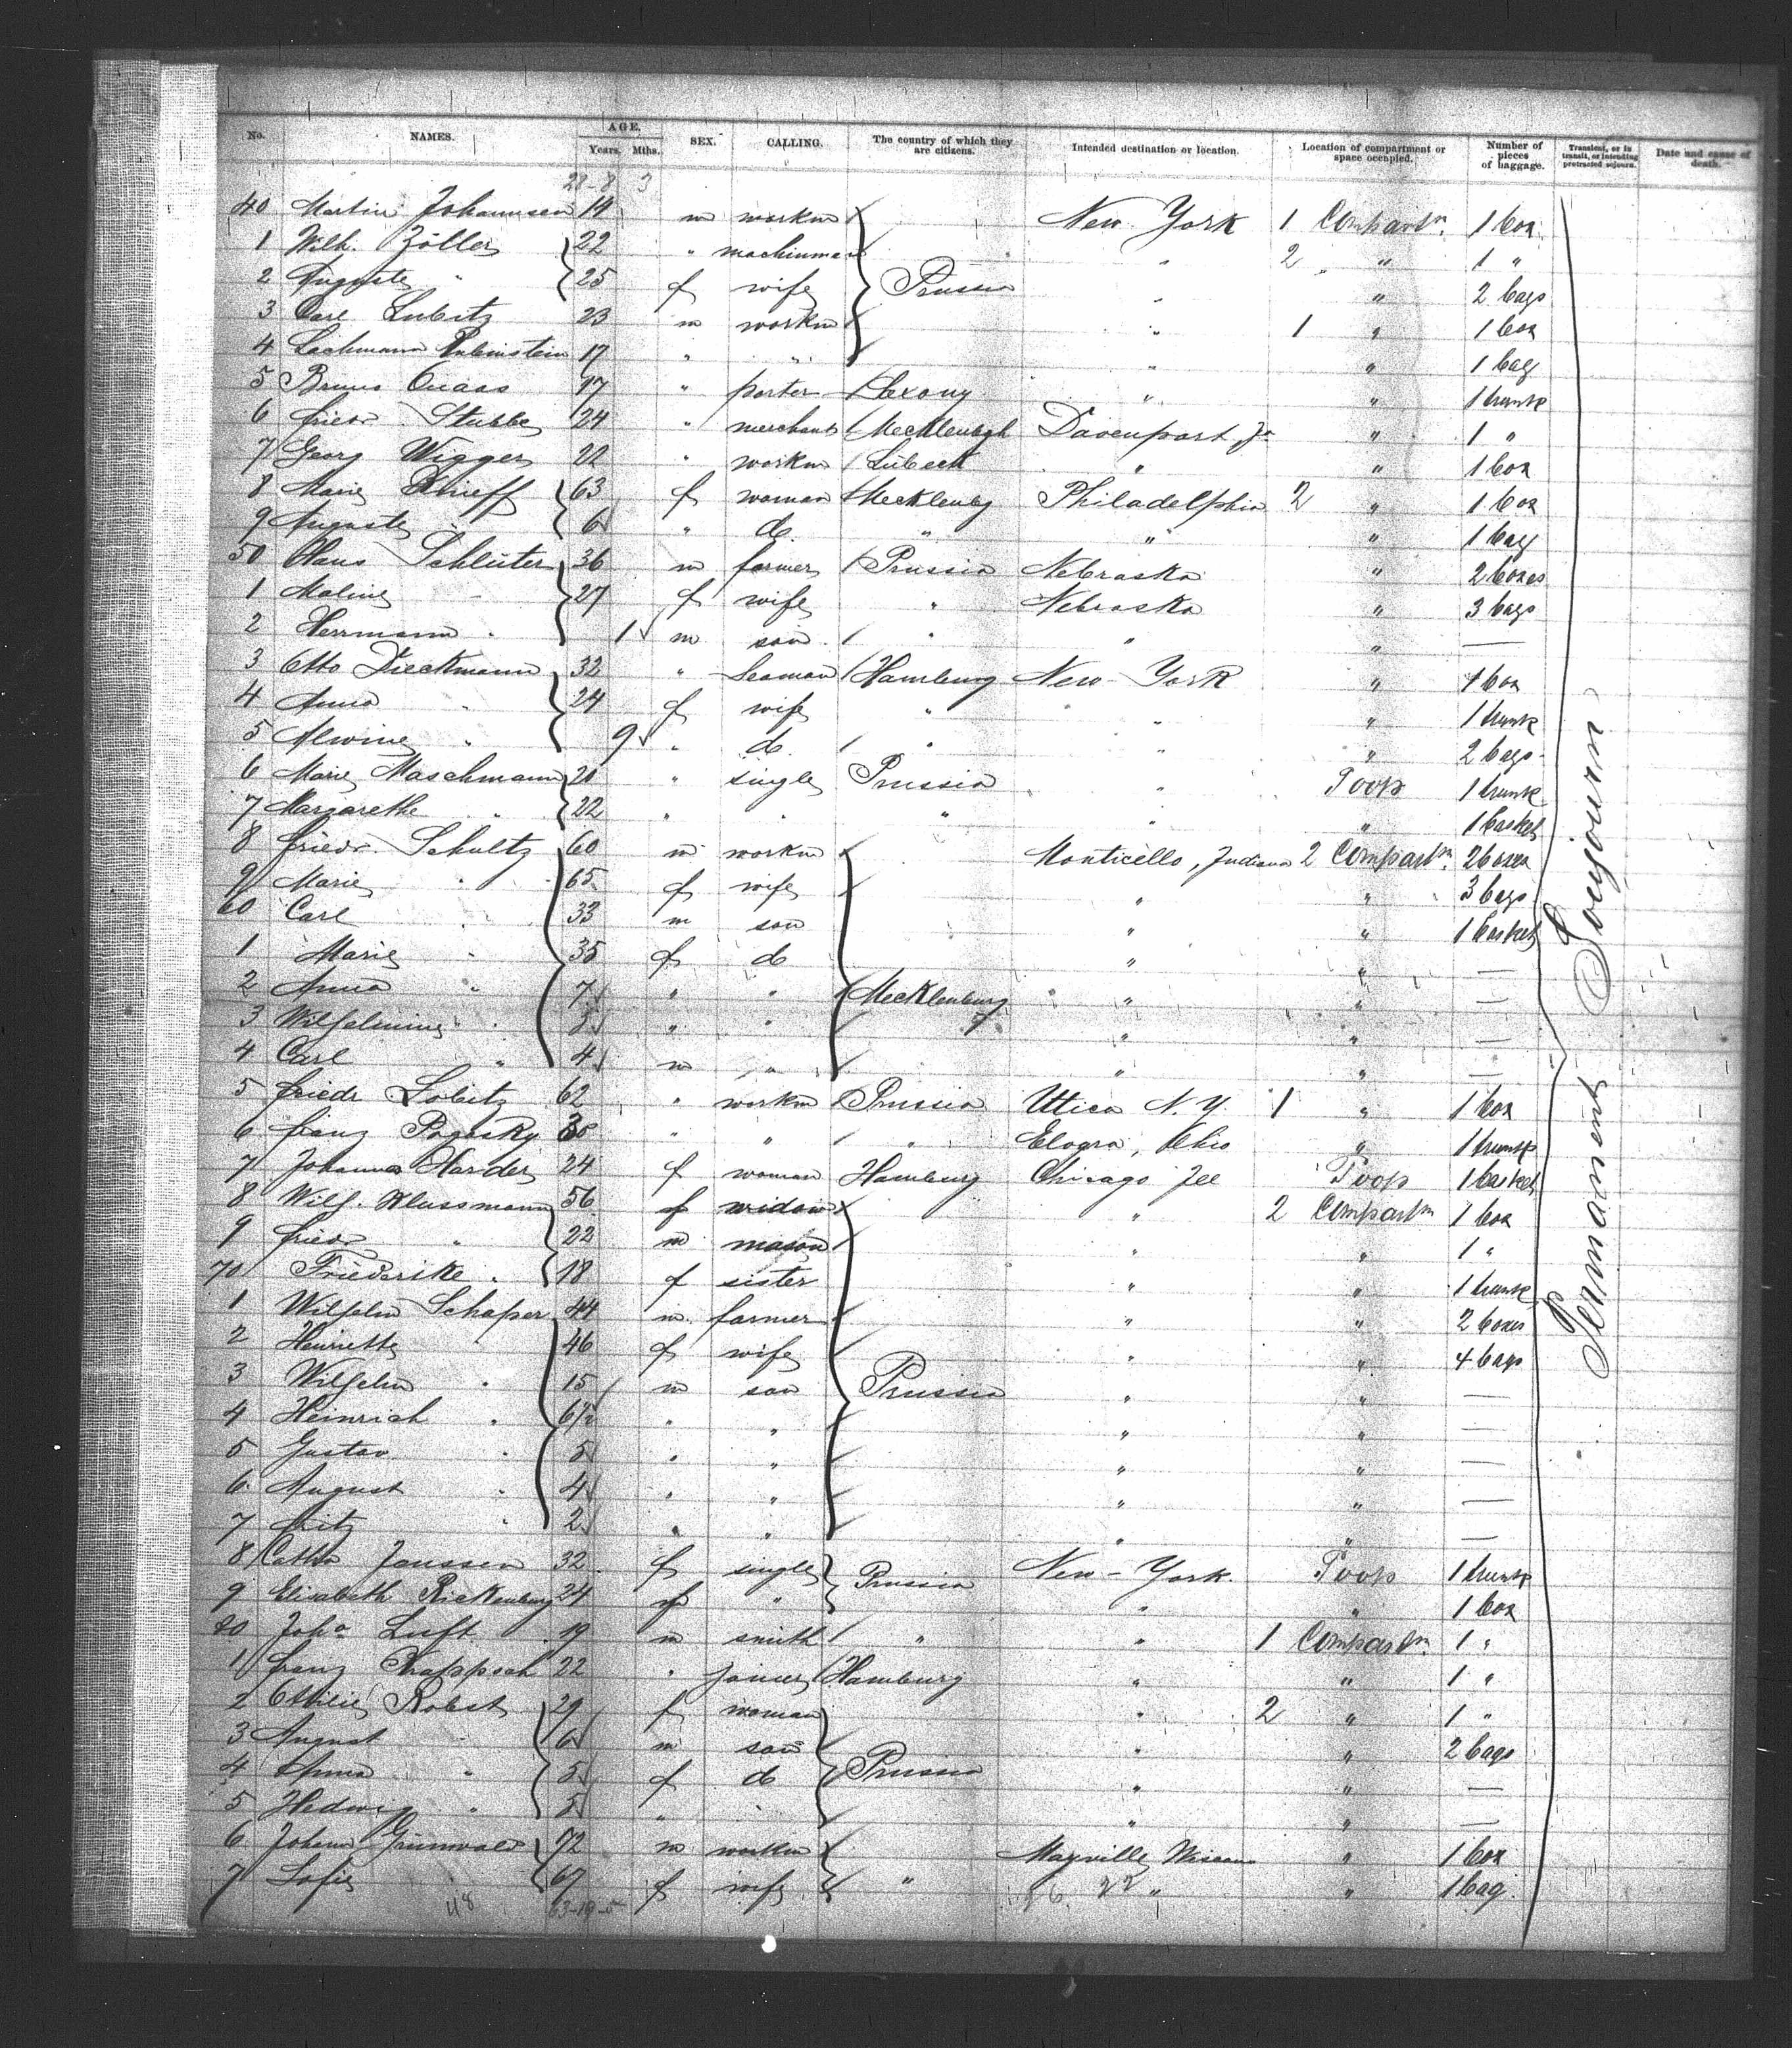 No. NAMES. AGE. Years. Mths. SEX. CALLING. The country of which they are citizens. Intended destination or location. Location of compartment or space occupied. Number of pieces of baggage. Transient, or in transit, or intending protracted sojourn. Date and cause of death.
28-8 3
40 Martin Johannsen 14 m workm New York 1 Compartm. 1 box
1 Wilh. Zöller 22 " machinman " 2 " 1 "
2 Auguste " 25 f wife Prussia " " 2 bags
3 Carl Lubitz 23 m workm " 1 " 1 box
4 Lachmann Rubinstein 17 " " " " 1 bag
5 Bruno Quaas 17 " porter Saxony " " 1 trunk
6 Friedr. Stubbe 24 " merchant Mecklenbgh Davenport, Ja " 1 "
7 Georg Wigger 22 " workm Lübeck " " 1 box
8 Marie 63 f woman Mecklenbg Philadelphia 2 " 1 box
9 Auguste " 6 " d. " " " 1 bag
50 Claus Schlüter 36 m farmer Prussia Nebraska " 2 boxes
1 Maline " 27 f wife " Nebraska " 3 bags
2 Herrmann " 1 m son " " " —
3 Otto Dieckmann 32 " Seaman Hamburg New-York " 1 box
4 Anna " 24 f wife " " " 1 trunk
5 Alwine " 9 " d. " " " 2 bags
6 Marie Maschmann 20 " single Prussia " Poop 1 trunk
7 Margarethe " 22 " " " " " 1 basket
8 Friedr. Schultz 60 m workm Monticello, Indiana 2 Compartm. 2 boxes
9 Marie " 65 f wife " " 3 bags
60 Carl " 33 m son " " 1 basket
1 Marie " 35 f d " " —
2 Anna " 7 " " Mecklenburg " " —
3 Wilhelmine " 5 " " " " —
4 Carl " 4 m " " " —
5 Friedr Lobitz 62 " workm Prussia Utica N.Y. 1 " 1 box
6 Franz 35 " " " Elogra, Ohio " 1 trunk
7 Johanna Harder 24 f woman Hamburg Chicago Ill Poop 1 basket
8 Wilh. Klussmann 56 f widow " 2 Compartm 1 box
9 Friedr " 22 m mason " " 1 "
70 Friederike " 18 f sister " " 1 trunk
1 Wilhelm Schaper 44 m. farmer " " 2 boxes
2 Henriette " 46 f wife " " 4 bags
3 Wilhelm " 15 m son Prussia " " —
4 Heinrich " 6½ " " " " —
5 Gustav " 5 " " " " —
6 August " 4 " " " " —
7 Fritz " 2 " " " " —
8 Catha Janssen 32 f single Prussia New-York. Poop 1 trunk
9 Elisabeth Rickenburg 24 f " " " 1 box
80 Joha Luft 19 m smith " " 1 Compartm. 1 "
1 Franz 22 " joiner Hamburg " " 1 "
2 Ottilie Robst 29 f woman " 2 " 1 "
3 August " 6 m son " " 2 bags
4 Anna " 5 f d Prussia " " —
5 Hedwig " 5 " " " " —
6 Johann Grünwald 72 m workm Mayville Wiscon " 1 box
7 Sofie 67 f wife " " " 1 bag.
48 63-19-5 86. 22
Permanent Soujourn